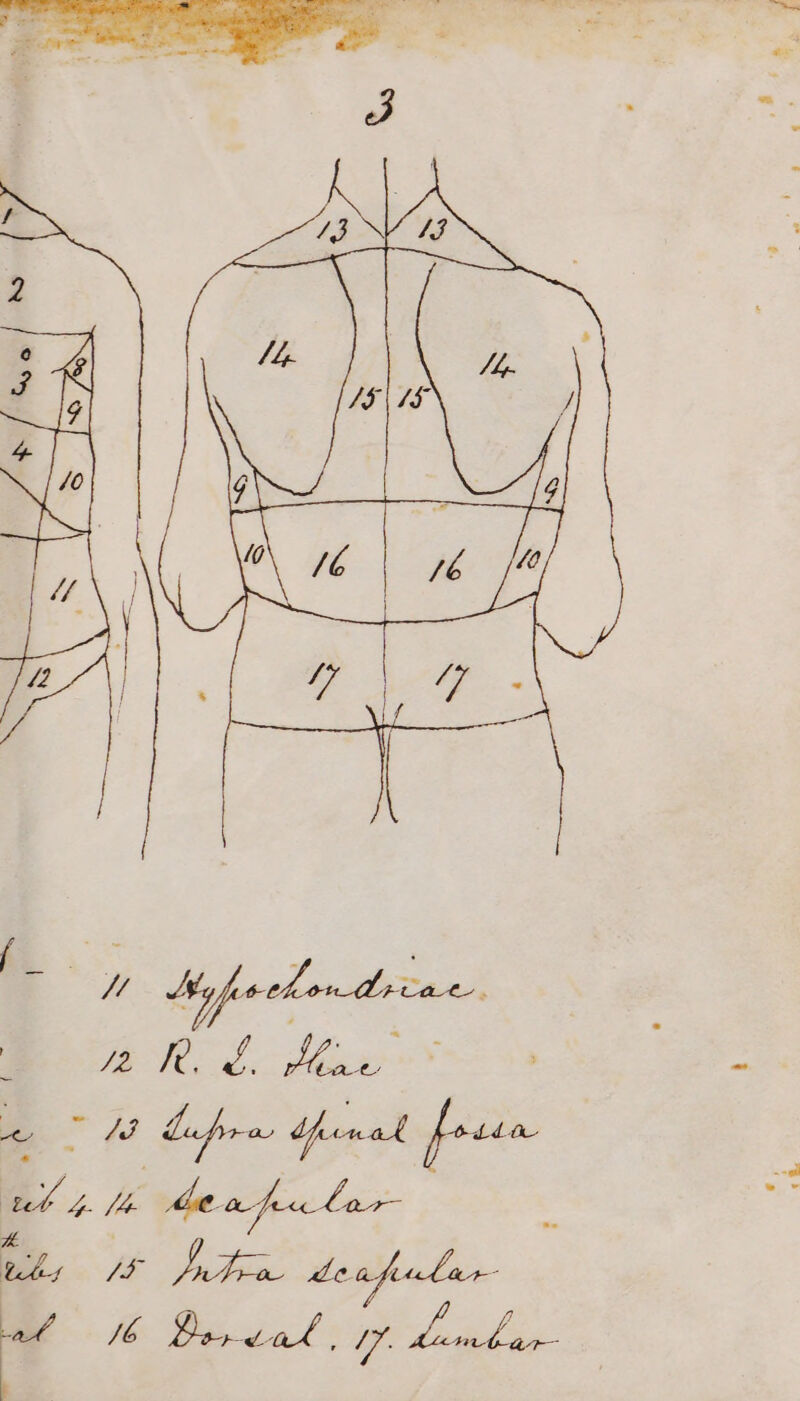 3
13 13
1
2
14 14
3 8
15 15
9
4
10 9 9
10 16 16 10
11
17 17
12
11 Hypochondriac.
12 R. L. Iliac
13 Supra Spinal fossa
4. 14 Scapular
15 Intra Scapular
16 Dorsal, 17. Lumbar